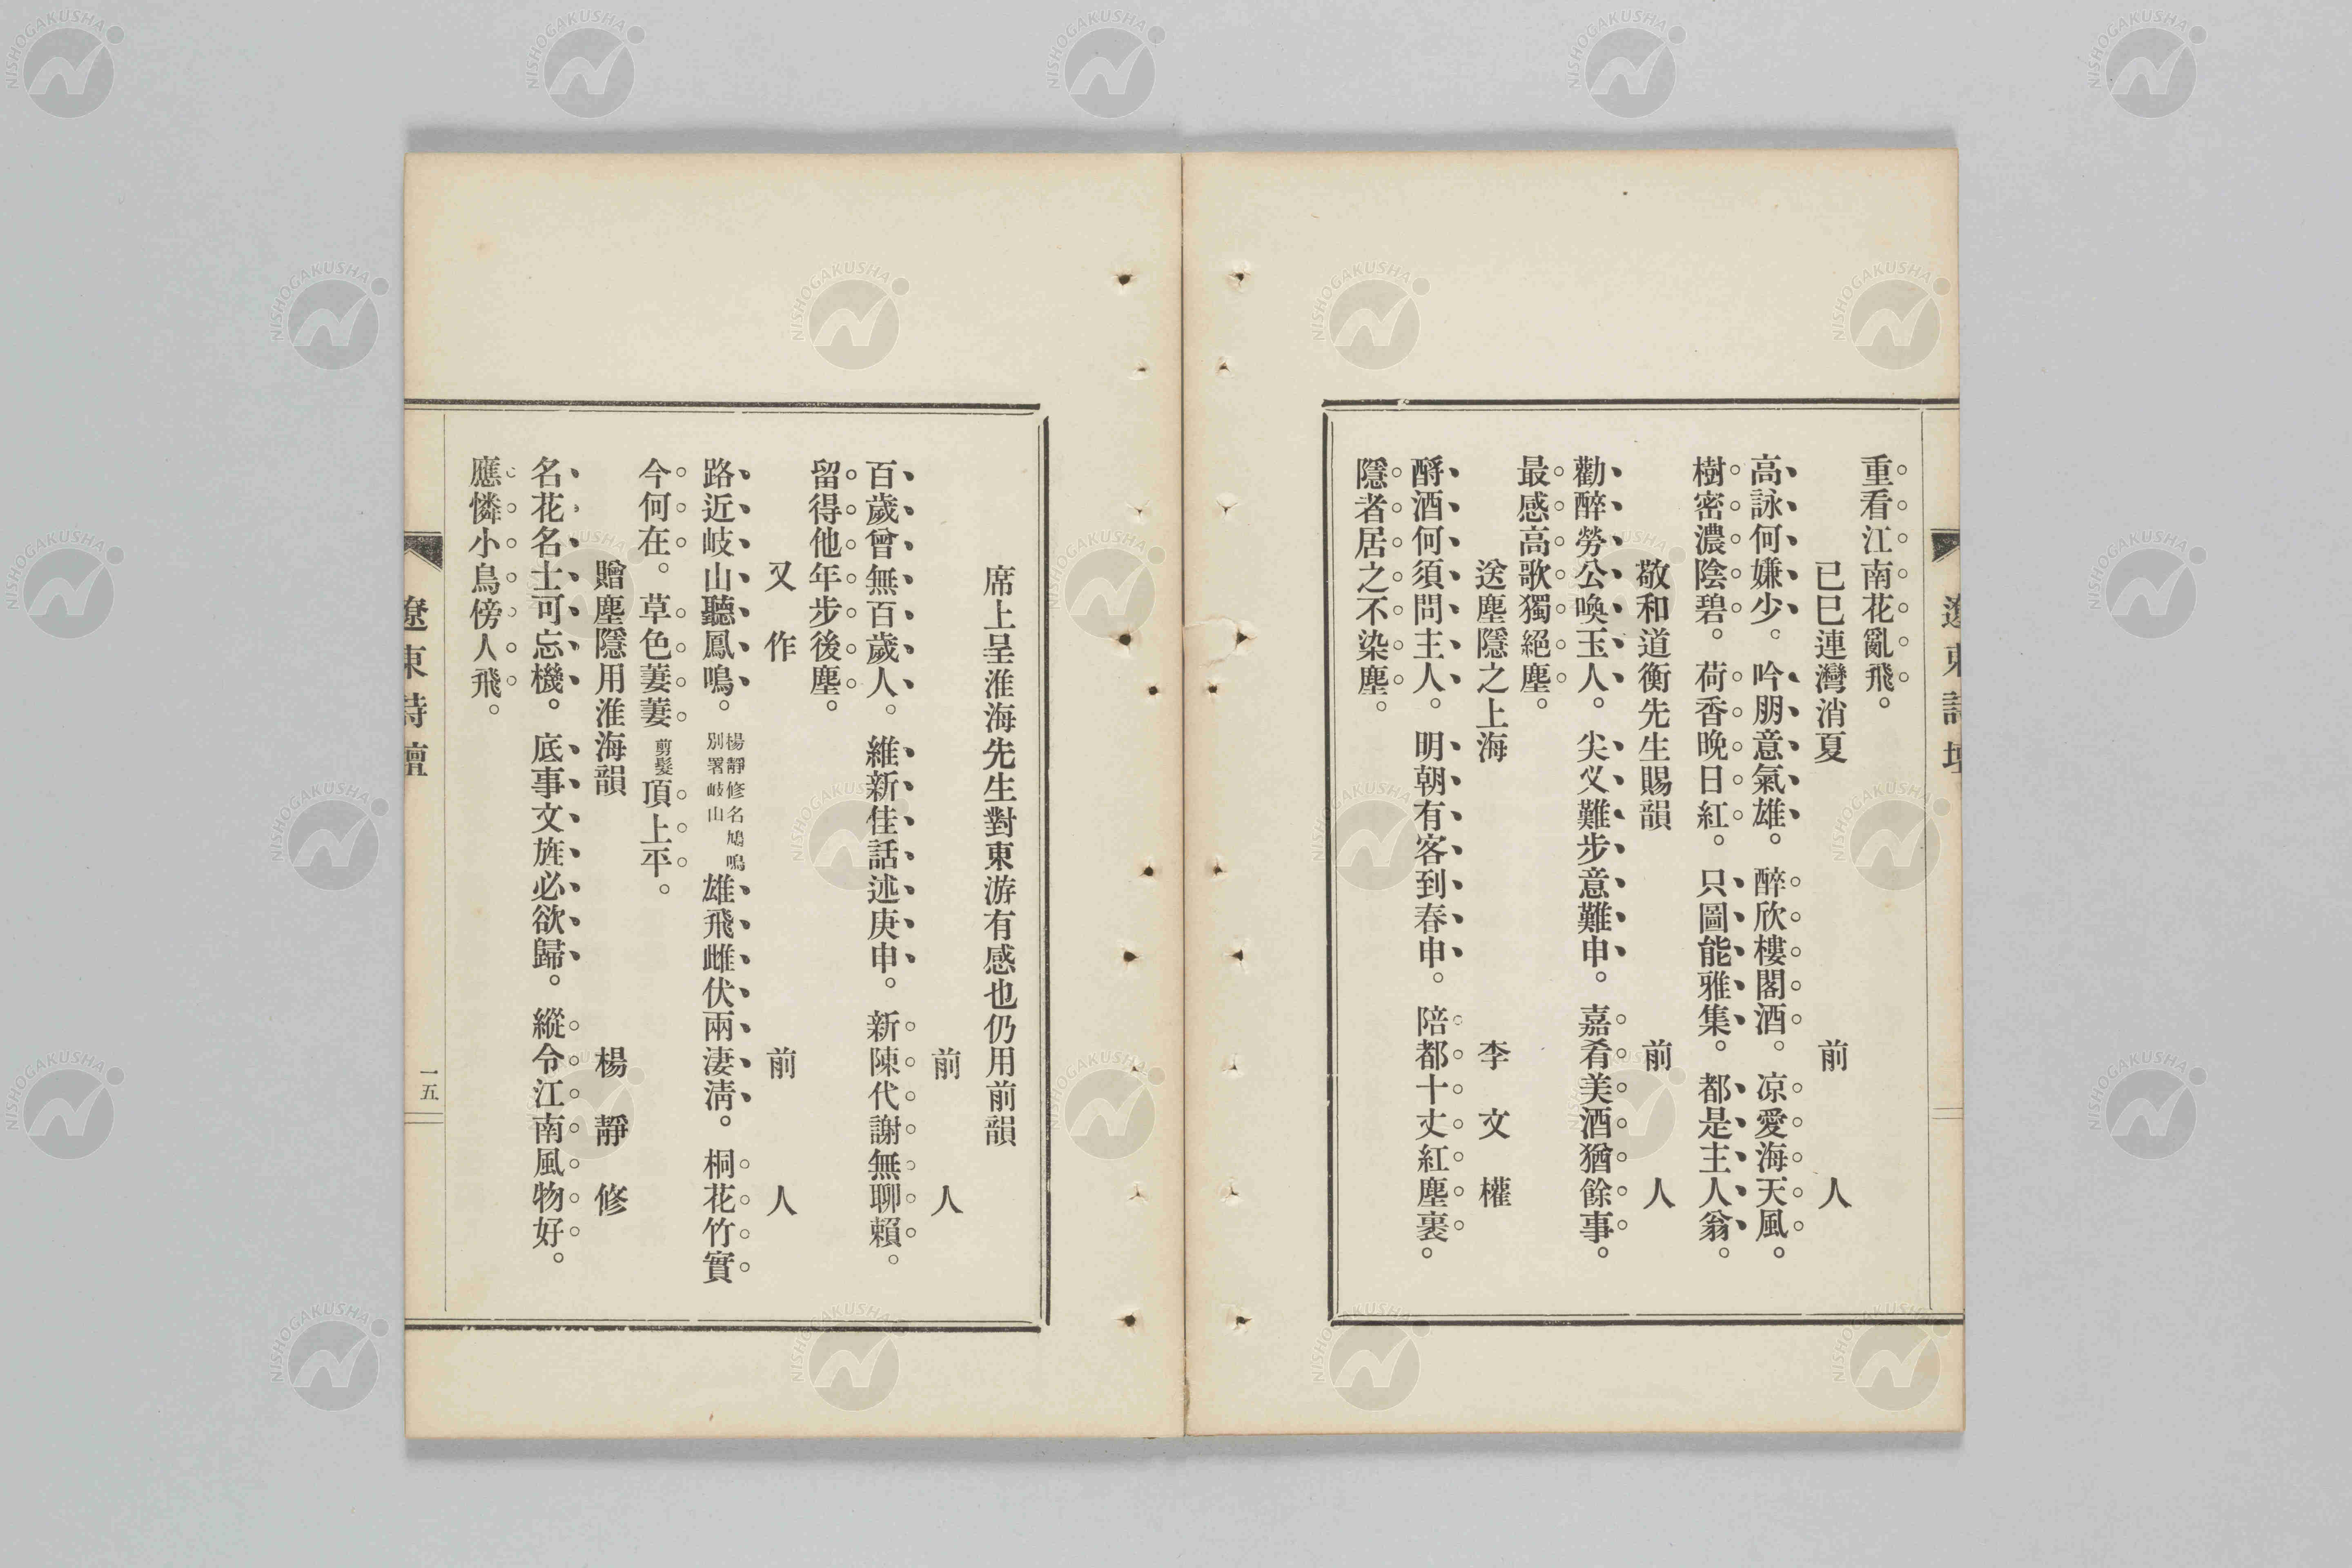 重看江南花亂飛。
己巳連灣消夏　前人
高詠何嫌少。吟朋意氣雄。醉欣樓閣酒。凉愛海天風。
樹密濃陰碧。荷香晚日紅。只圖能雅集。都是主人翁。
敬和道衡先生賜韻　前人
勸醉勞公喚玉人。尖叉難步意難申。嘉肴美酒猶餘事。
最感高歌獨絕塵。
送塵隱之上海　李文權
酹酒何須問主人。明朝有客到春申。陪都十丈紅塵裏。
隱者居之不染塵。
遼東詩壇
席上呈淮海先生對東游有感也仍用前韻
前人
百歲曾無百歲人。維新佳話述庚申。新陳代謝無聊賴。
留得他年步後塵。
又作　前人
路近岐山聽鳳鳴。楊靜修名鳩鳴別署岐山雄飛雌伏兩淒清。桐花竹實
今何在。草色萋萋剪髮頂上平。
贈塵隱用淮海韻　楊靜修
名花名士可忘機。底事文旌必欲歸。縱令江南風物好。
應憐小鳥傍人飛。
遼東詩壇
一五
NISHOGAKUSHA